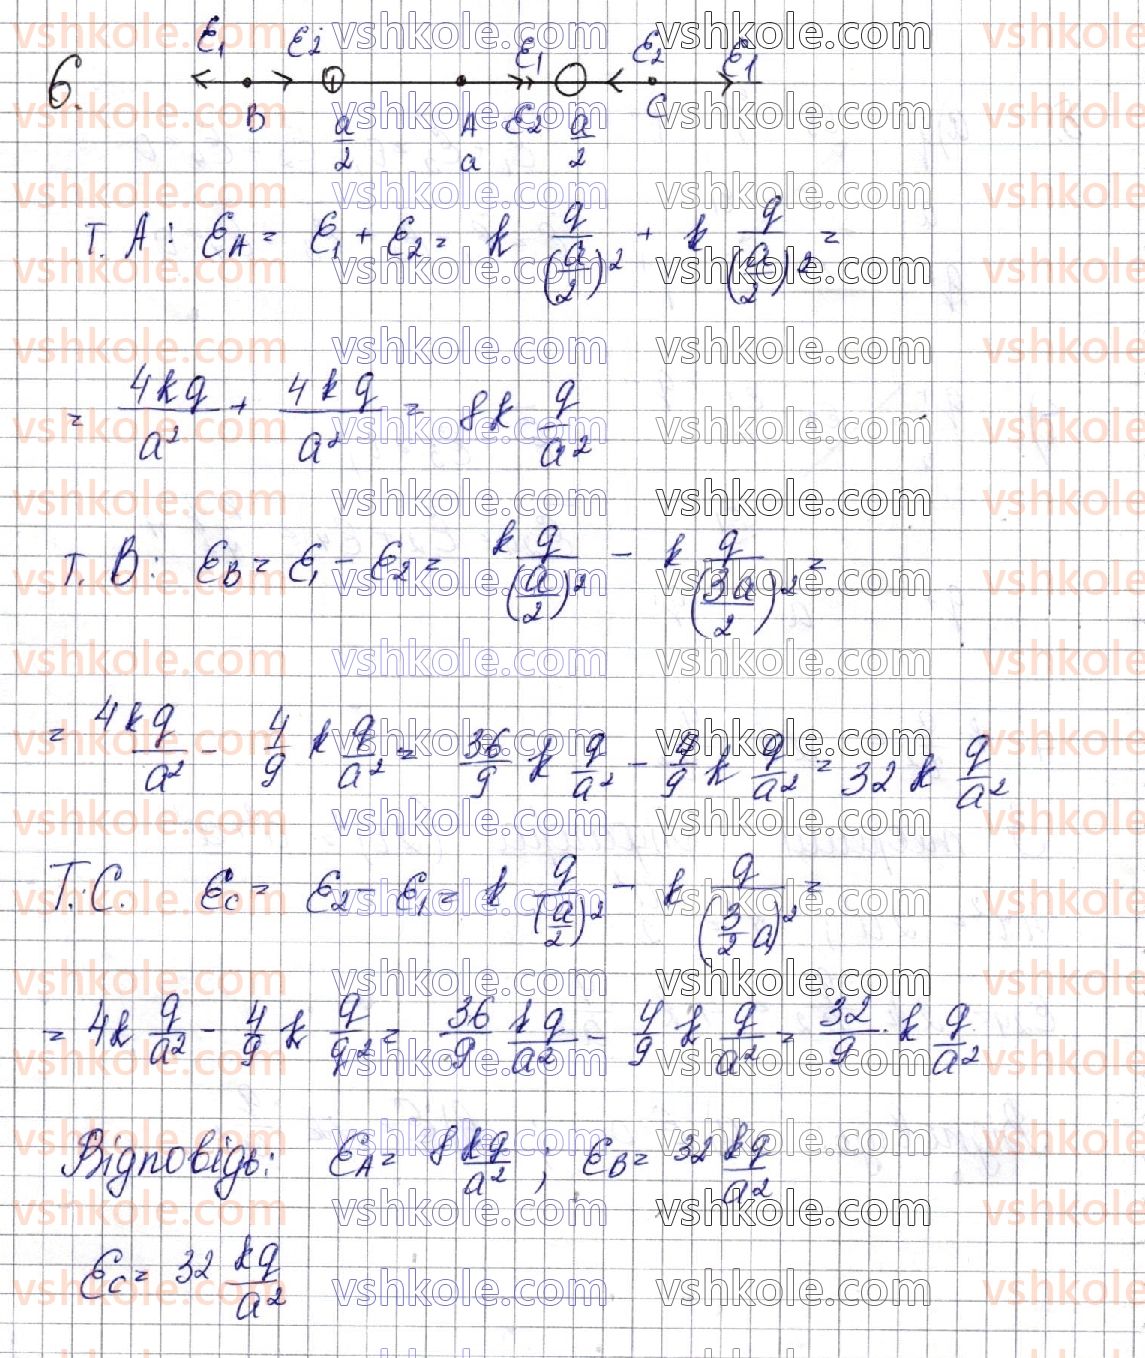 6.
E₁ E₂ E₁ E₂ E₁
B a/2 A a E₂ a/2 C
т. A: E_A = E₁ + E₂ = k q/(a/2)² + k q/(a/2)² =
= 4kq/a² + 4kq/a² = 8k q/a²
т. B: E_B = E₁ - E₂ = k q/(a/2)² - k q/(3a/2)² =
= 4kq/a² - 4/9 k q/a² = 36/9 k q/a² - 4/9 k q/a² = 32 k q/a²
Т. C. E_C = E₂ - E₁ = k q/(a/2)² - k q/(3/2 a)² =
= 4k q/a² - 4/9 k q/q² = 36/9 kq/a² - 4/9 k q/a² = 32/9 · k q/a²
Відповідь: E_A = 8 kq/a² ; E_B = 32 kq/a²
E_C = 32 kq/a²
vshkole.com